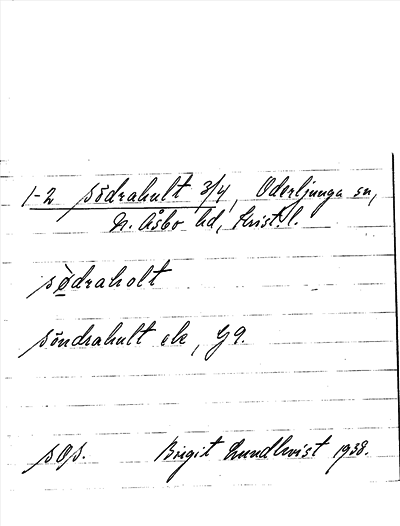 1-2 södrahult 3/4, Oderljunga sn,
N. Åsbo hd, Krist. l.
sødraholt
söndrahult ek, G9.
sOp. Birgit Lundkvist 1938.